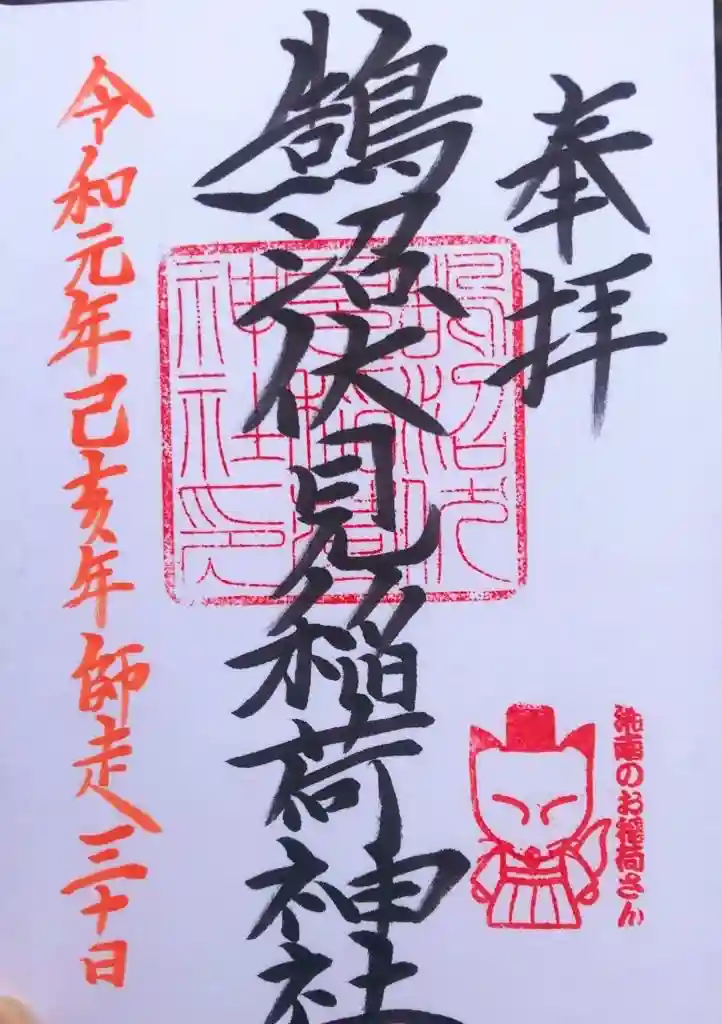 奉拝
湘南のお稲荷さん
鵠沼伏見稲荷神社
鵠沼伏
見稲荷
神社印
令和元年己亥年師走三十日